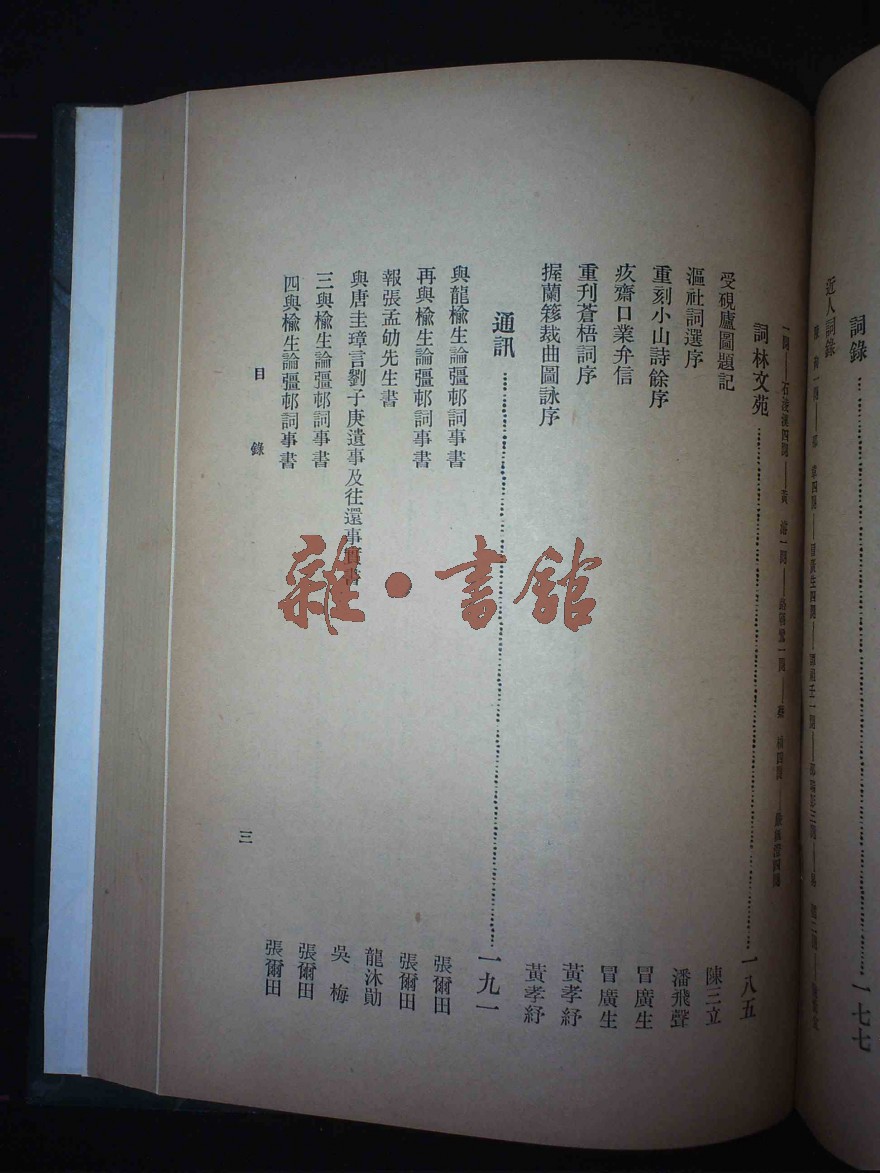 詞錄……一七七
近人詞錄
詞林文苑……一八五
受硯廬圖題記 陳三立
漚社詞選序 潘飛聲
重刻小山詩餘序 冒廣生
疚齋口業弁信 冒廣生
重刊蒼梧詞序 黃孝紓
握蘭簃裁曲圖詠序 黃孝紓
通訊……一九一
與龍楡生論彊邨詞事書 張爾田
再與楡生論彊邨詞事書 張爾田
報張孟劬先生書 龍沐勛
與唐圭璋言劉子庚遺事及往還事實書 吳梅
三與楡生論彊邨詞事書 張爾田
四與楡生論彊邨詞事書 張爾田
目錄
三
雜·書館